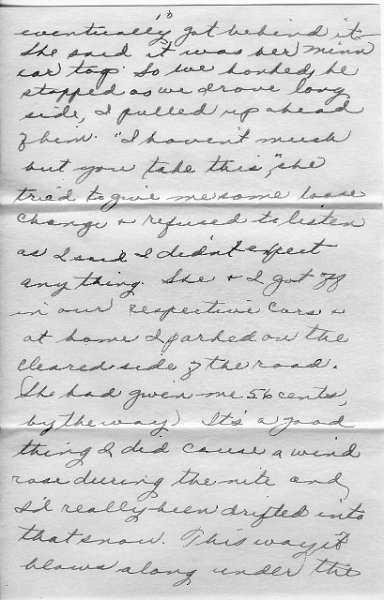 10
eventually got behind it
She said it was her minn
car top. So we honked, he
stopped as we drove long
side, I pulled up ahead
of him. "I haven't much
but you take this", she
tried to give me some loose
change & refused to listen
as I said I didn't expect
anything. She & I got off
in our respective cars &
at home I parked on the
cleared side of the road.
(She had given me 56 cents,
by the way). It's a good
thing I did cause a wind
rose during the nite and
I'd really been drifted into
that snow. This way it
blows along under the